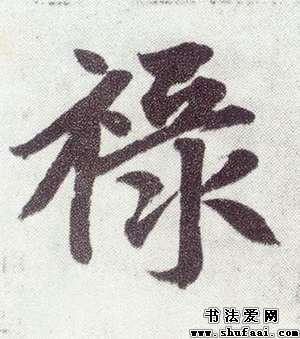 禄
书法爱网
www.shufaai.com